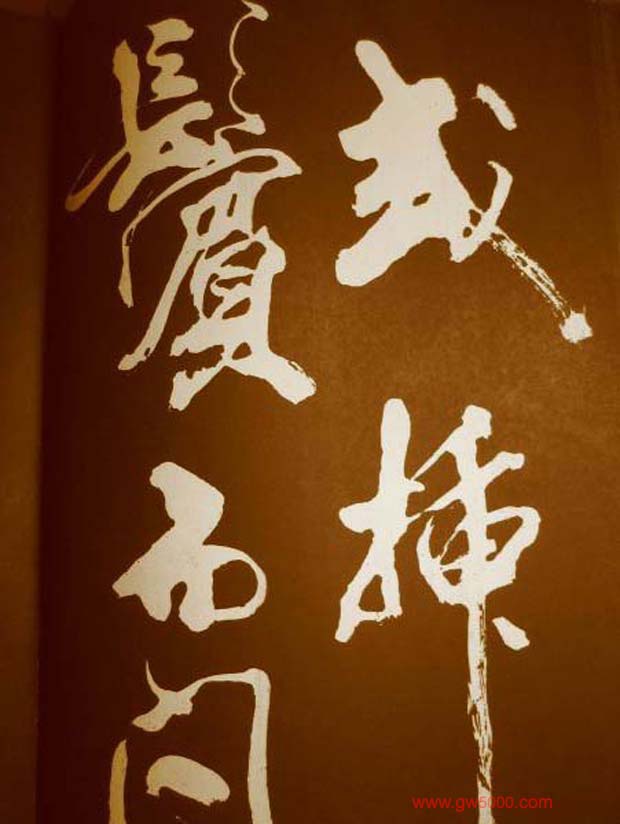 或挿
鬢而問
www.gw5000.com